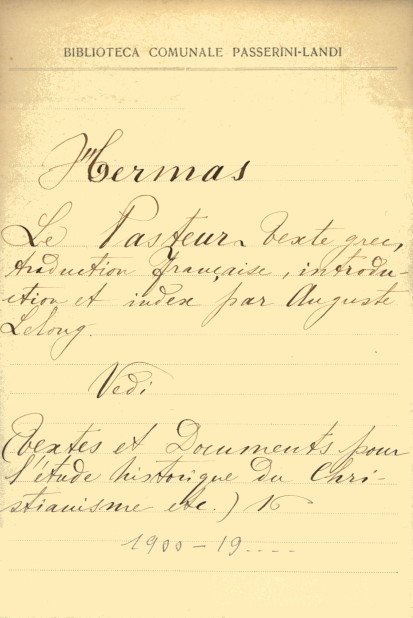 BIBLIOTECA COMUNALE PASSERINI-LANDI
Hermas
Le Pasteur. Texte grec,
traduction française, introdu-
ction et index par Auguste
Lelong.
Vedi
(Textes et Documents pour
l'étude historique du Chri-
stianisme etc.)
1900-19....